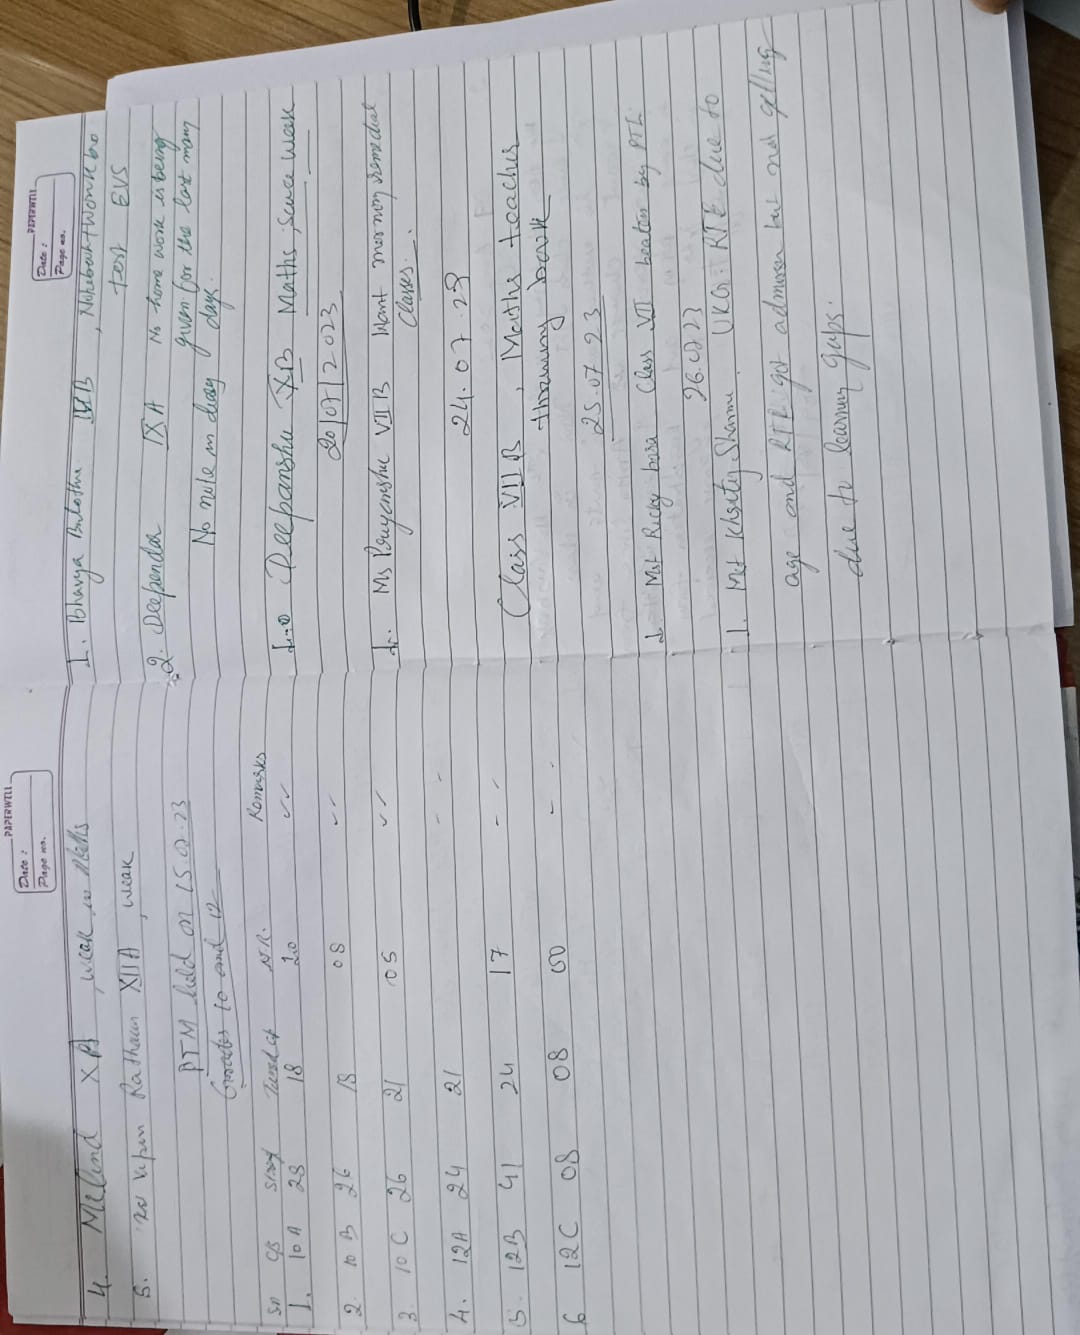 PAPERWELL
Date :
Page no.
4. Milind XA, weak in
5. Vipin Rathaur XIIA, weak
PTM held on 15.07.23
Grades 10 and 12
Sn Remarks
1. 10A 28 18 20
2. 10 B 26 18 08
3. 10 C 26 21 05
4. 12A 24 21 - -
5. 12B 41 24 17 - -
6 12C 08 08 00 - -
PAPERWELL
Date :
Page no.
1. Bhavya
test EVS
2. Deependar IXA No home work is being
given for the last many
days.
No note in diary
1. Deepanshu XB Maths, Science weak
20/07/2023
1. Ms VIIB Want morning remedial
Classes.
24.07.23
Class VIIB, Maths teacher
throwing book
25.07.23
1. Mst Ricky Class VII beaten by PTI.
26.07.23
1. Mst Sharma. UKG. RTE due to
age and RTE got admission but not getting
due to learning gaps.